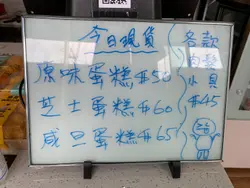 今日現貨
原味蛋糕 #50
芝士蛋糕 #60
咸旦蛋糕 #65
各款
小貝
#45